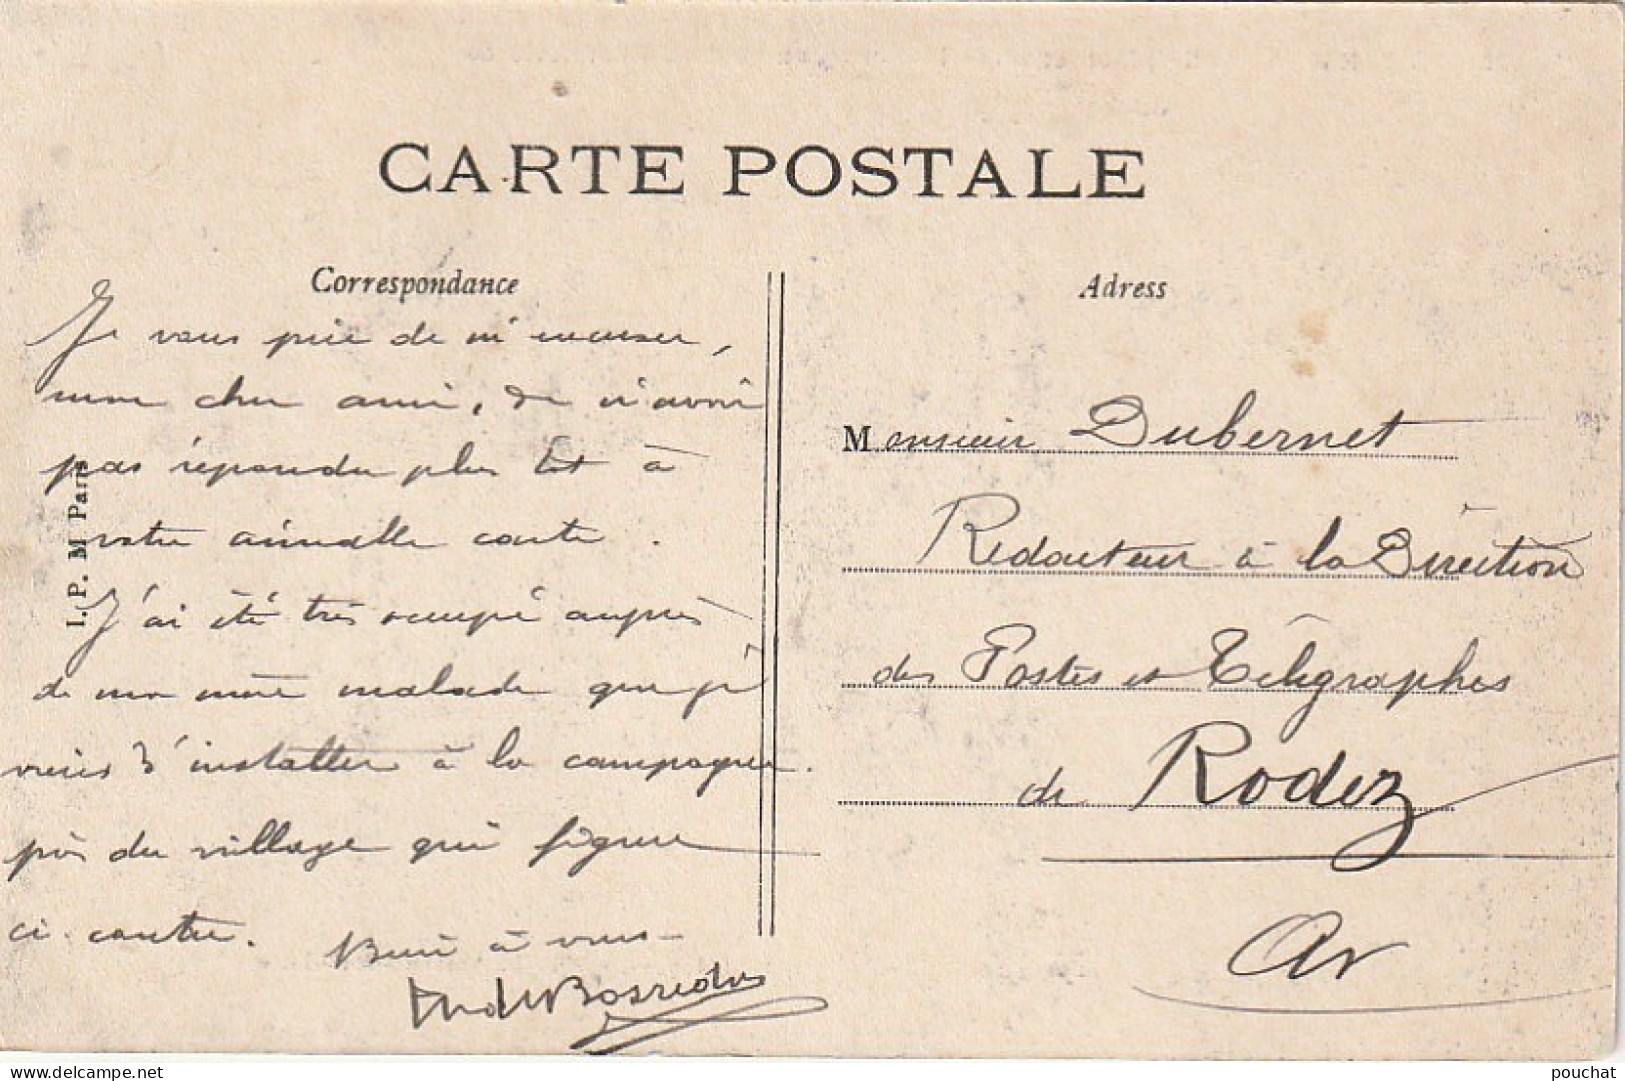 CARTE POSTALE
Correspondance
Adress
I. P. M Paris
Je vous prie de m'excuser,
mon cher ami, de n'avoir
pas répondu plus tôt à
votre aimable carte.
J'ai été très occupé auprès
de ma mère malade que je
viens d'installer à la campagne.
près du village qui figure
ci-contre. Bien à vous
Bosredon
Monsieur Dubernet
Rédacteur à la Direction
des Postes et Télégraphes
de Rodez
Av
pouchat
delcampe.net